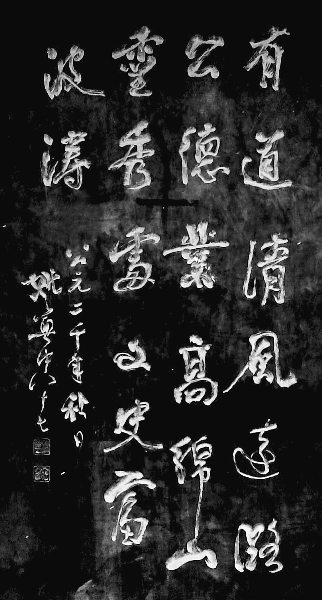 有道清風遠潞
公德業高綿山
靈秀處文史富
波濤
公元二千年秋日
姚奠中八十七